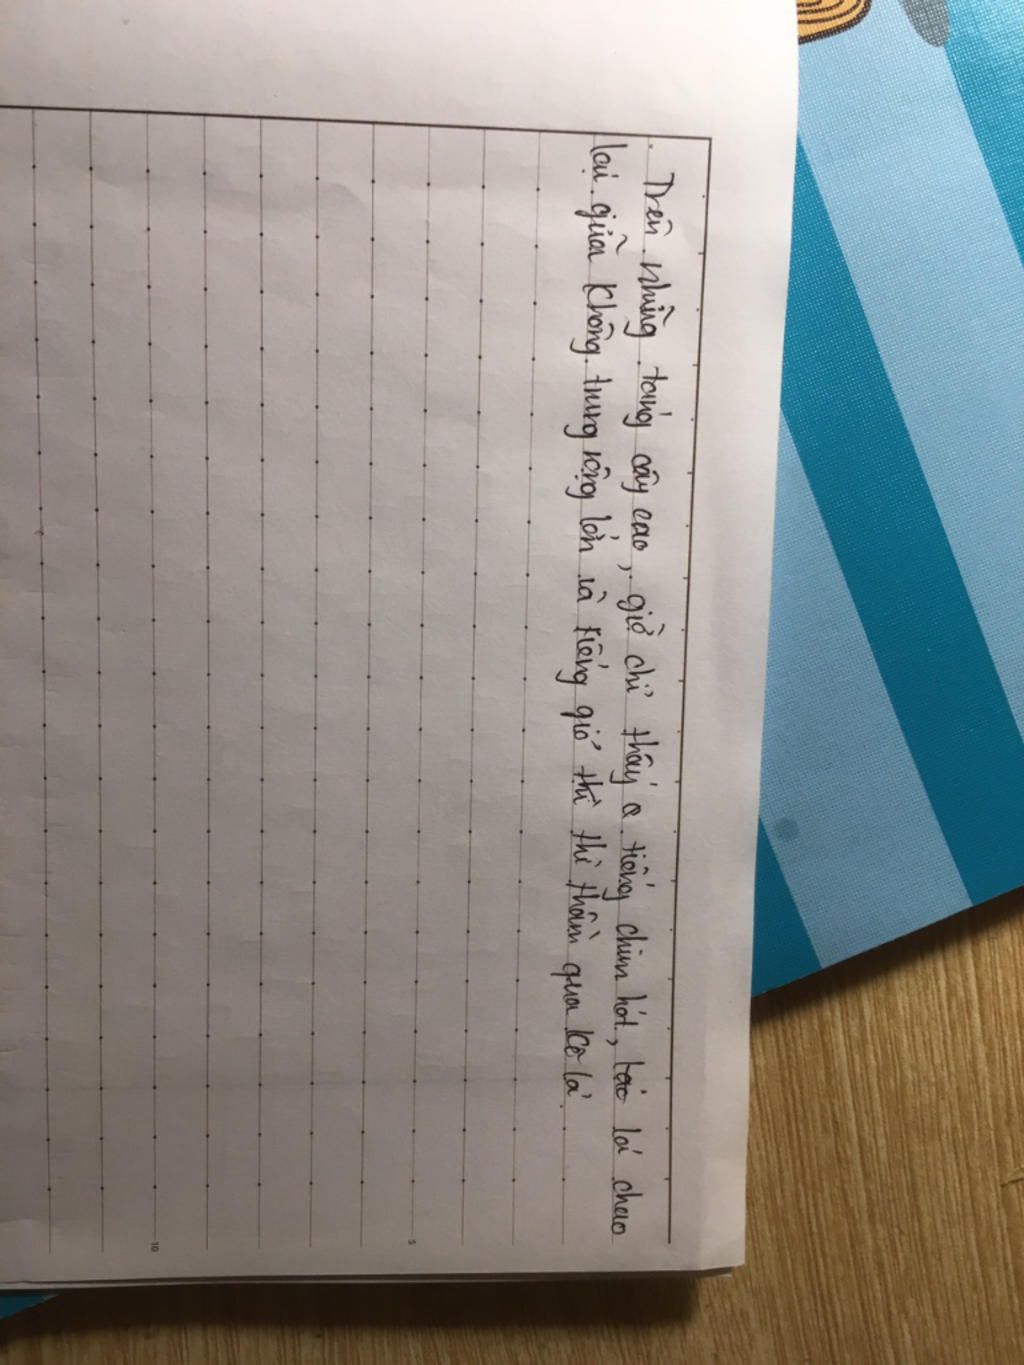 Trên những tańg cây cao, giờ chỉ thấy a tiếng chim hót, báo lá chao
lại giữa không trung rộng lớn và tiếng gió thì thì thầm qua kẽ lá.
5
10